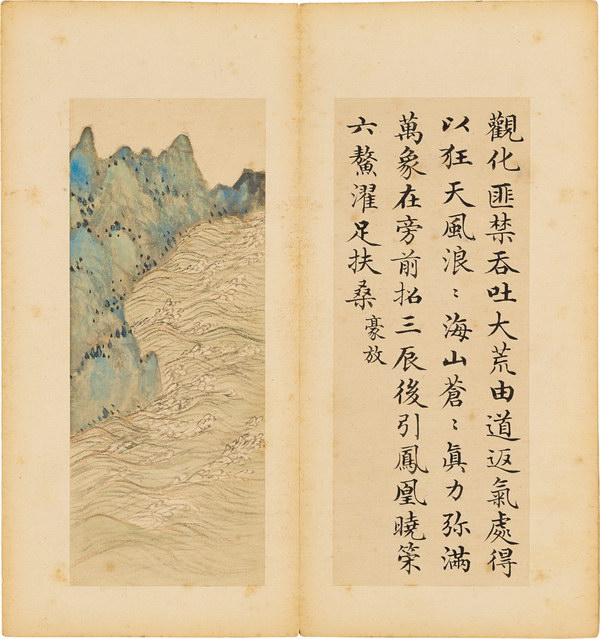 觀化匪禁吞吐大荒由道返氣處得
以狂天風浪〻海山蒼〻真力弥滿
萬象在旁前招三辰後引鳳凰曉策
六鰲濯足扶桑
豪放